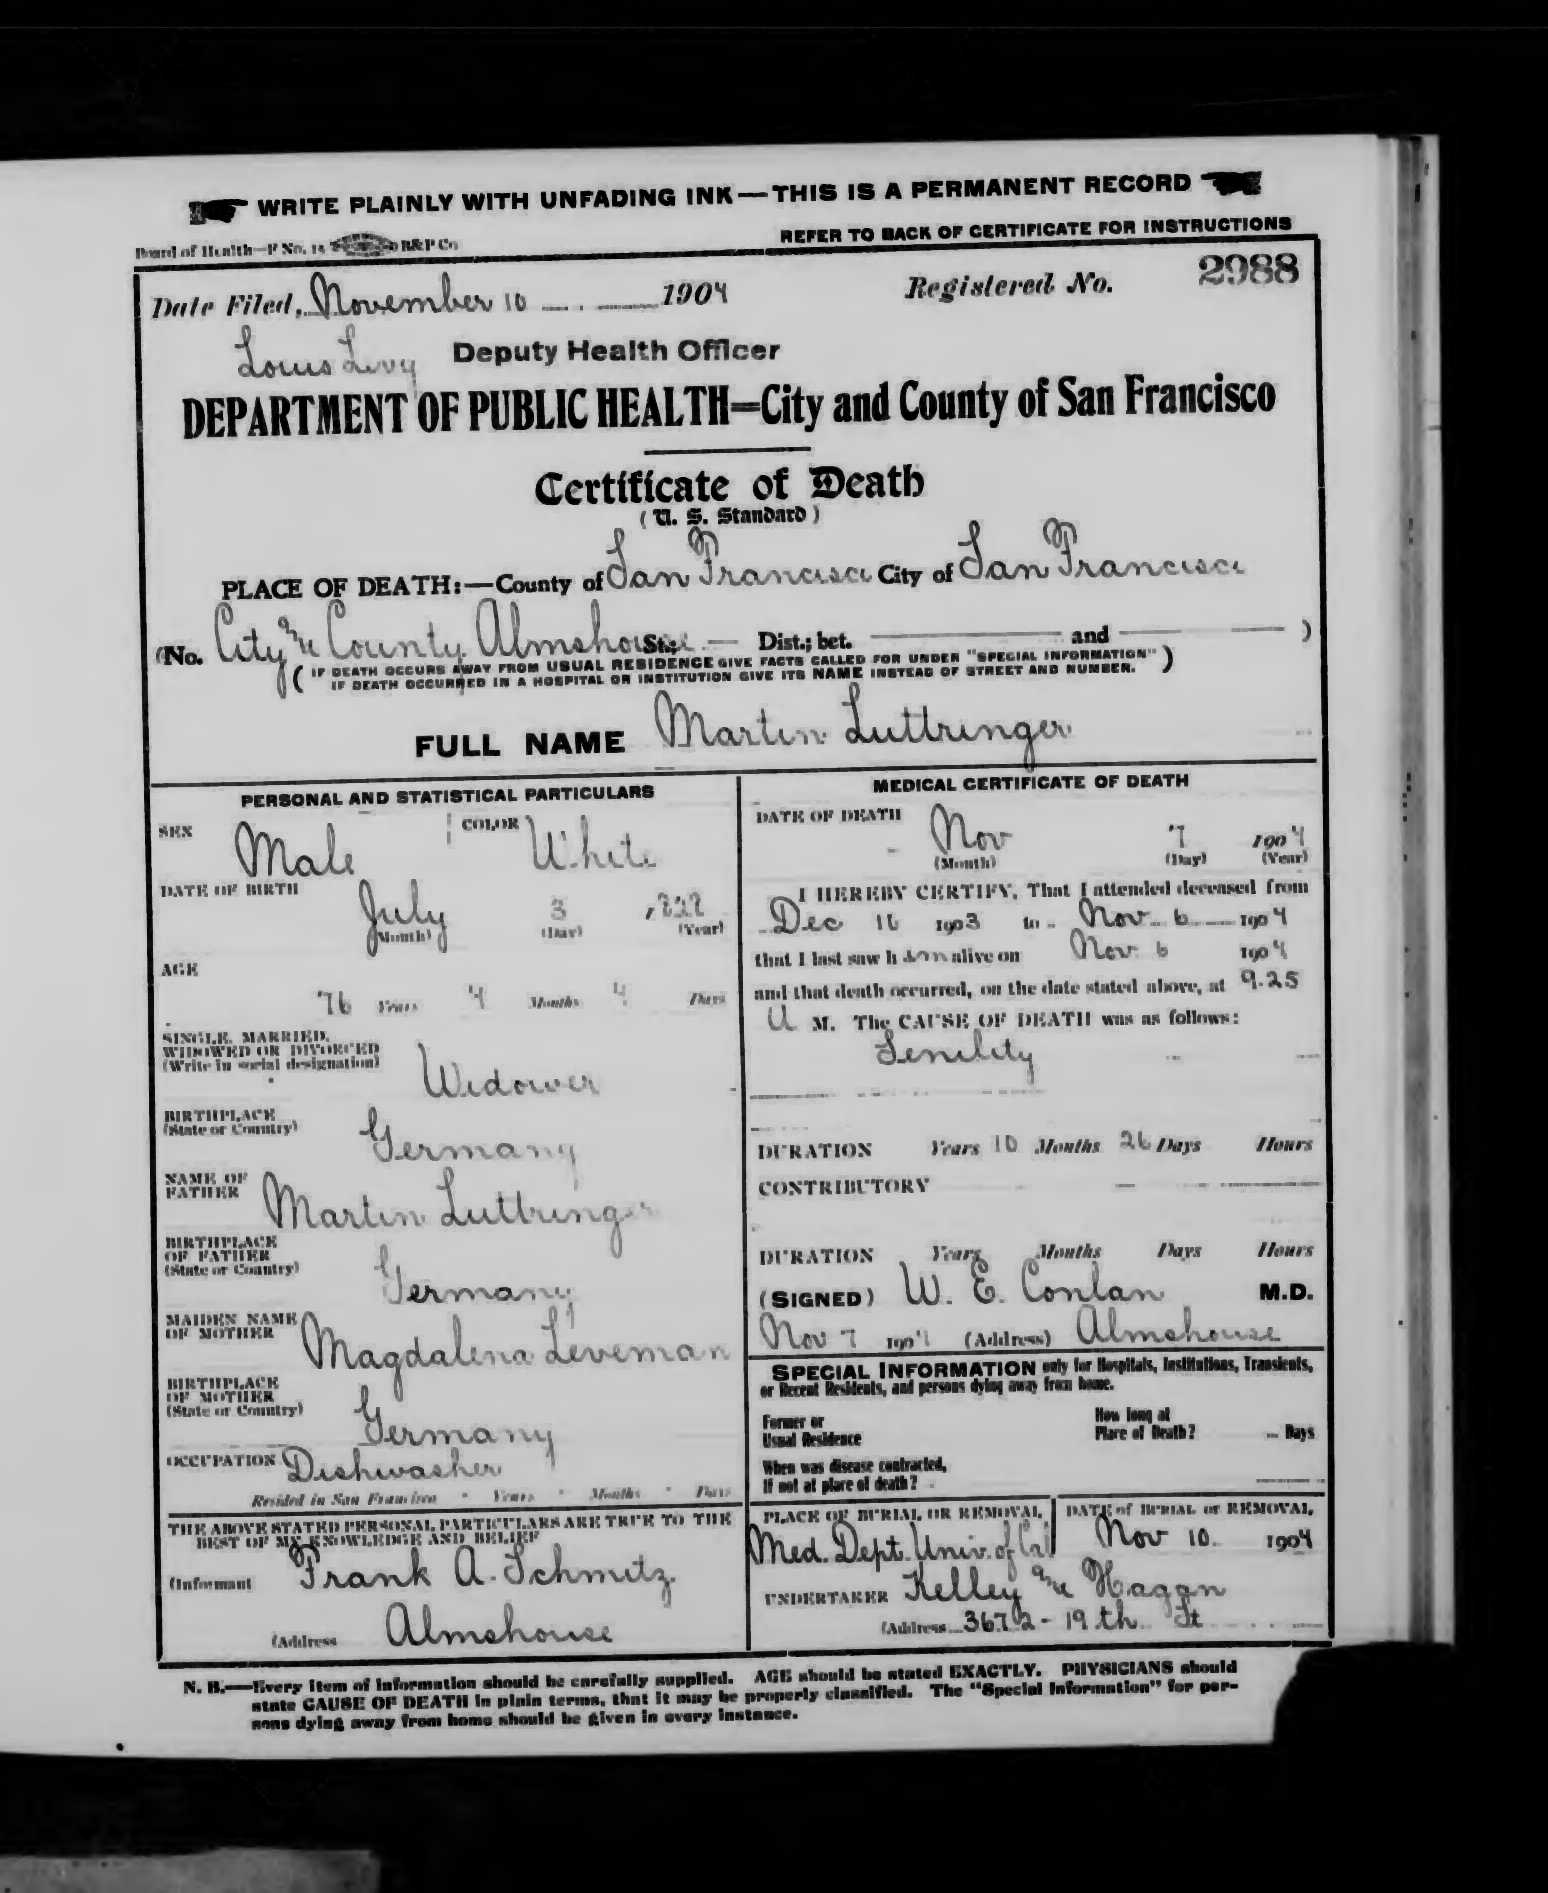 WRITE PLAINLY WITH UNFADING INK—THIS IS A PERMANENT RECORD
Board of Health—F No. 15 B&P Co
REFER TO BACK OF CERTIFICATE FOR INSTRUCTIONS
Date Filed, November 10 1904 Registered No. 2988
Louis Levy Deputy Health Officer
DEPARTMENT OF PUBLIC HEALTH=City and County of San Francisco
Certificate of Death
(U. S. Standard)
PLACE OF DEATH:—County of San Francisco City of San Francisco
(No. City and County Almshouse St.; — Dist.; bet. — and — )
(IF DEATH OCCURS AWAY FROM USUAL RESIDENCE GIVE FACTS CALLED FOR UNDER "SPECIAL INFORMATION")
IF DEATH OCCURRED IN A HOSPITAL OR INSTITUTION GIVE ITS NAME INSTEAD OF STREET AND NUMBER.
FULL NAME Martin Luttringer
PERSONAL AND STATISTICAL PARTICULARS
SEX Male COLOR White
DATE OF BIRTH July 3
(Month) (Day) (Year)
AGE
76 Years 4 Months 4 Days
SINGLE, MARRIED,
WIDOWED OR DIVORCED
(Write in social designation) Widower
BIRTHPLACE
(State or Country) Germany
NAME OF
FATHER Martin Luttringer
BIRTHPLACE
OF FATHER
(State or Country) Germany
MAIDEN NAME
OF MOTHER Magdalena Leveman
BIRTHPLACE
OF MOTHER
(State or Country) Germany
OCCUPATION Dishwasher
Resided in San Francisco Years Months Days
THE ABOVE STATED PERSONAL PARTICULARS ARE TRUE TO THE
BEST OF MY KNOWLEDGE AND BELIEF
(Informant Frank A. Schmitz
(Address Almshouse
MEDICAL CERTIFICATE OF DEATH
DATE OF DEATH Nov 7 1904
(Month) (Day) (Year)
I HEREBY CERTIFY, That I attended deceased from
Dec 16 1903 to Nov 6 1904
that I last saw him alive on Nov 6 1904
and that death occurred, on the date stated above, at 9.25
M. The CAUSE OF DEATH was as follows:
Senility
DURATION Years 10 Months 26 Days Hours
CONTRIBUTORY
DURATION Years Months Days Hours
(SIGNED) W. E. Conlan M.D.
Nov 7 1904 (Address) Almshouse
SPECIAL INFORMATION only for Hospitals, Institutions, Transients,
or Recent Residents, and persons dying away from home.
Former or
Usual Residence
How long at
Place of Death? Days
When was disease contracted,
If not at place of death?
PLACE OF BURIAL OR REMOVAL
Med. Dept. Univ. of Cal
DATE of BURIAL or REMOVAL,
Nov 10. 1904
UNDERTAKER Kelley and Hagan
(Address 3672 - 19th St
N. B.—Every item of information should be carefully supplied. AGE should be stated EXACTLY. PHYSICIANS should
state CAUSE OF DEATH in plain terms, that it may be properly classified. The "Special Information" for per-
sons dying away from home should be given in every instance.